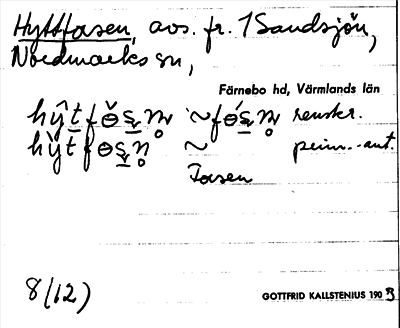 Hyttfasen, avs. fr. 1 Sandsjön,
Nordmarks sn,
Färnebo hd, Värmlands län
renskr.
prim.-ant.
Fasen
8 (12)
GOTTFRID KALLSTENIUS 1903